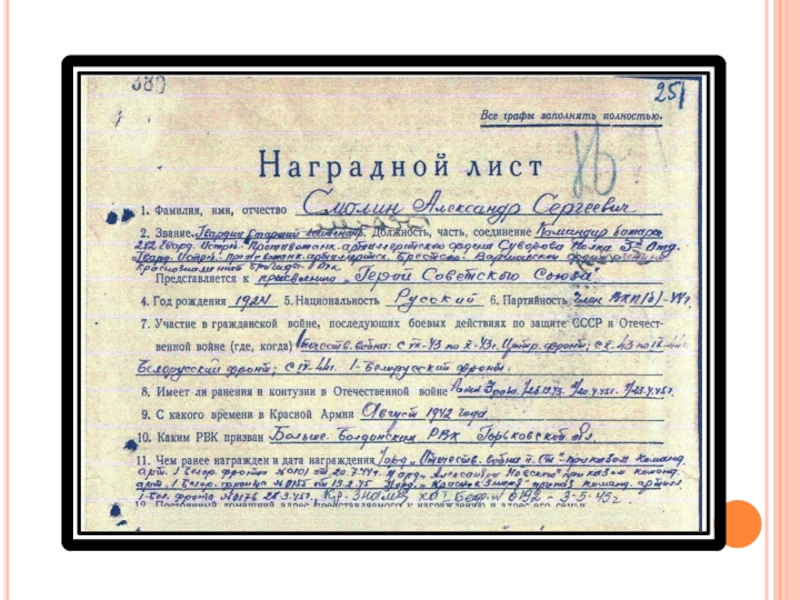 380
251
Все графы заполнять полностью.
Наградной лист
1. Фамилия, имя, отчество Смолин Александр Сергеевич
2. Звание Гвардии старший лейтенант. Должность, часть, соединение Командир батареи
282 Гвард. Истреб. Противотанк. артиллерийского ордена Суворова полка 3й отд.
Гвард. Истреб. Противотанк. артиллерийск. Брестско-Варшавской
Краснознаменной бригады
Представляется к присвоению „Герой Советского Союза"
4. Год рождения 1924 5. Национальность Русский 6. Партийность член ВКП(б)-44г.
7. Участие в гражданской войне, последующих боевых действиях по защите СССР и Отечест-
венной войне (где, когда) Отечеств. война: с по X-43г. Центр. фронт; с X-43 по
Белорусский фронт; с 1-Белорусский фронт.
8. Имеет ли ранения и контузии в Отечественной войне
9. С какого времени в Красной Армии Август 1942 года
10. Каким РВК призван Больше-Болдинским РВК Горьковской обл.
11. Чем ранее награжден и дата награждения Орд. „Отечеств. война II ст" приказом команд.
арт. 1 Белор. фронта №0101 от 20.7.44г. Орд. „Александр Невского" приказом команд.
арт. 1 Белор. фронта №0155 от 13.2.45 Орд. „Красное Знамя" приказ команд. артил.
1-Бел. фронта №0176 28.3.45г. Кр. Знамя, 1 БелФ № 0192 - 3-5-45г.
12. Постоянный домашний адрес представляемого к награждению и адрес его семьи